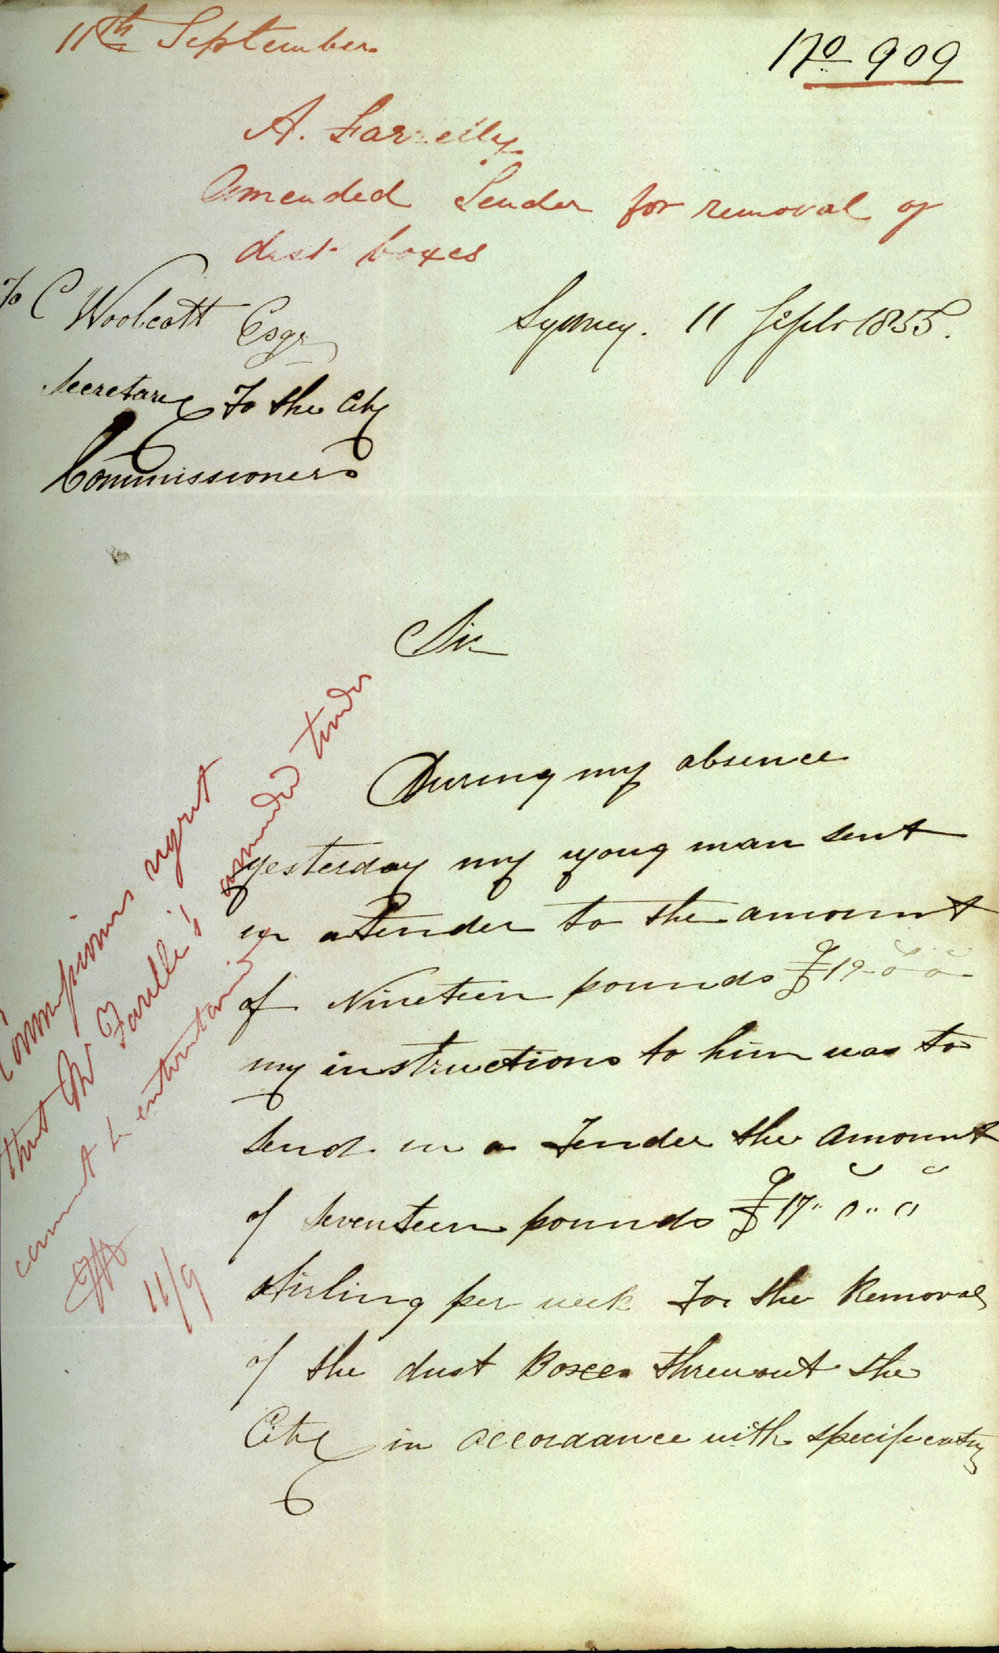 11th September
No 909
A. Farrelly
Amended Tender for removal of
dust boxes
To C Woolcott Esqr
Secretary To the City
Commissioners
Sydney. 11 Septr 1855.
Sir
During my absence
yesterday my young man sent
in a Tender to the amount
of Nineteen pounds £19 " 0 " 0
my instructions to him was to
send in a Tender the amount
of Seventeen pounds £17 " 0 " 0
stirling per week For the Removal
of the dust Boxes threwout the
City in accordance with
Commissioners regret
that Mr Farelli's amended tender
cannot be entertained
11/9